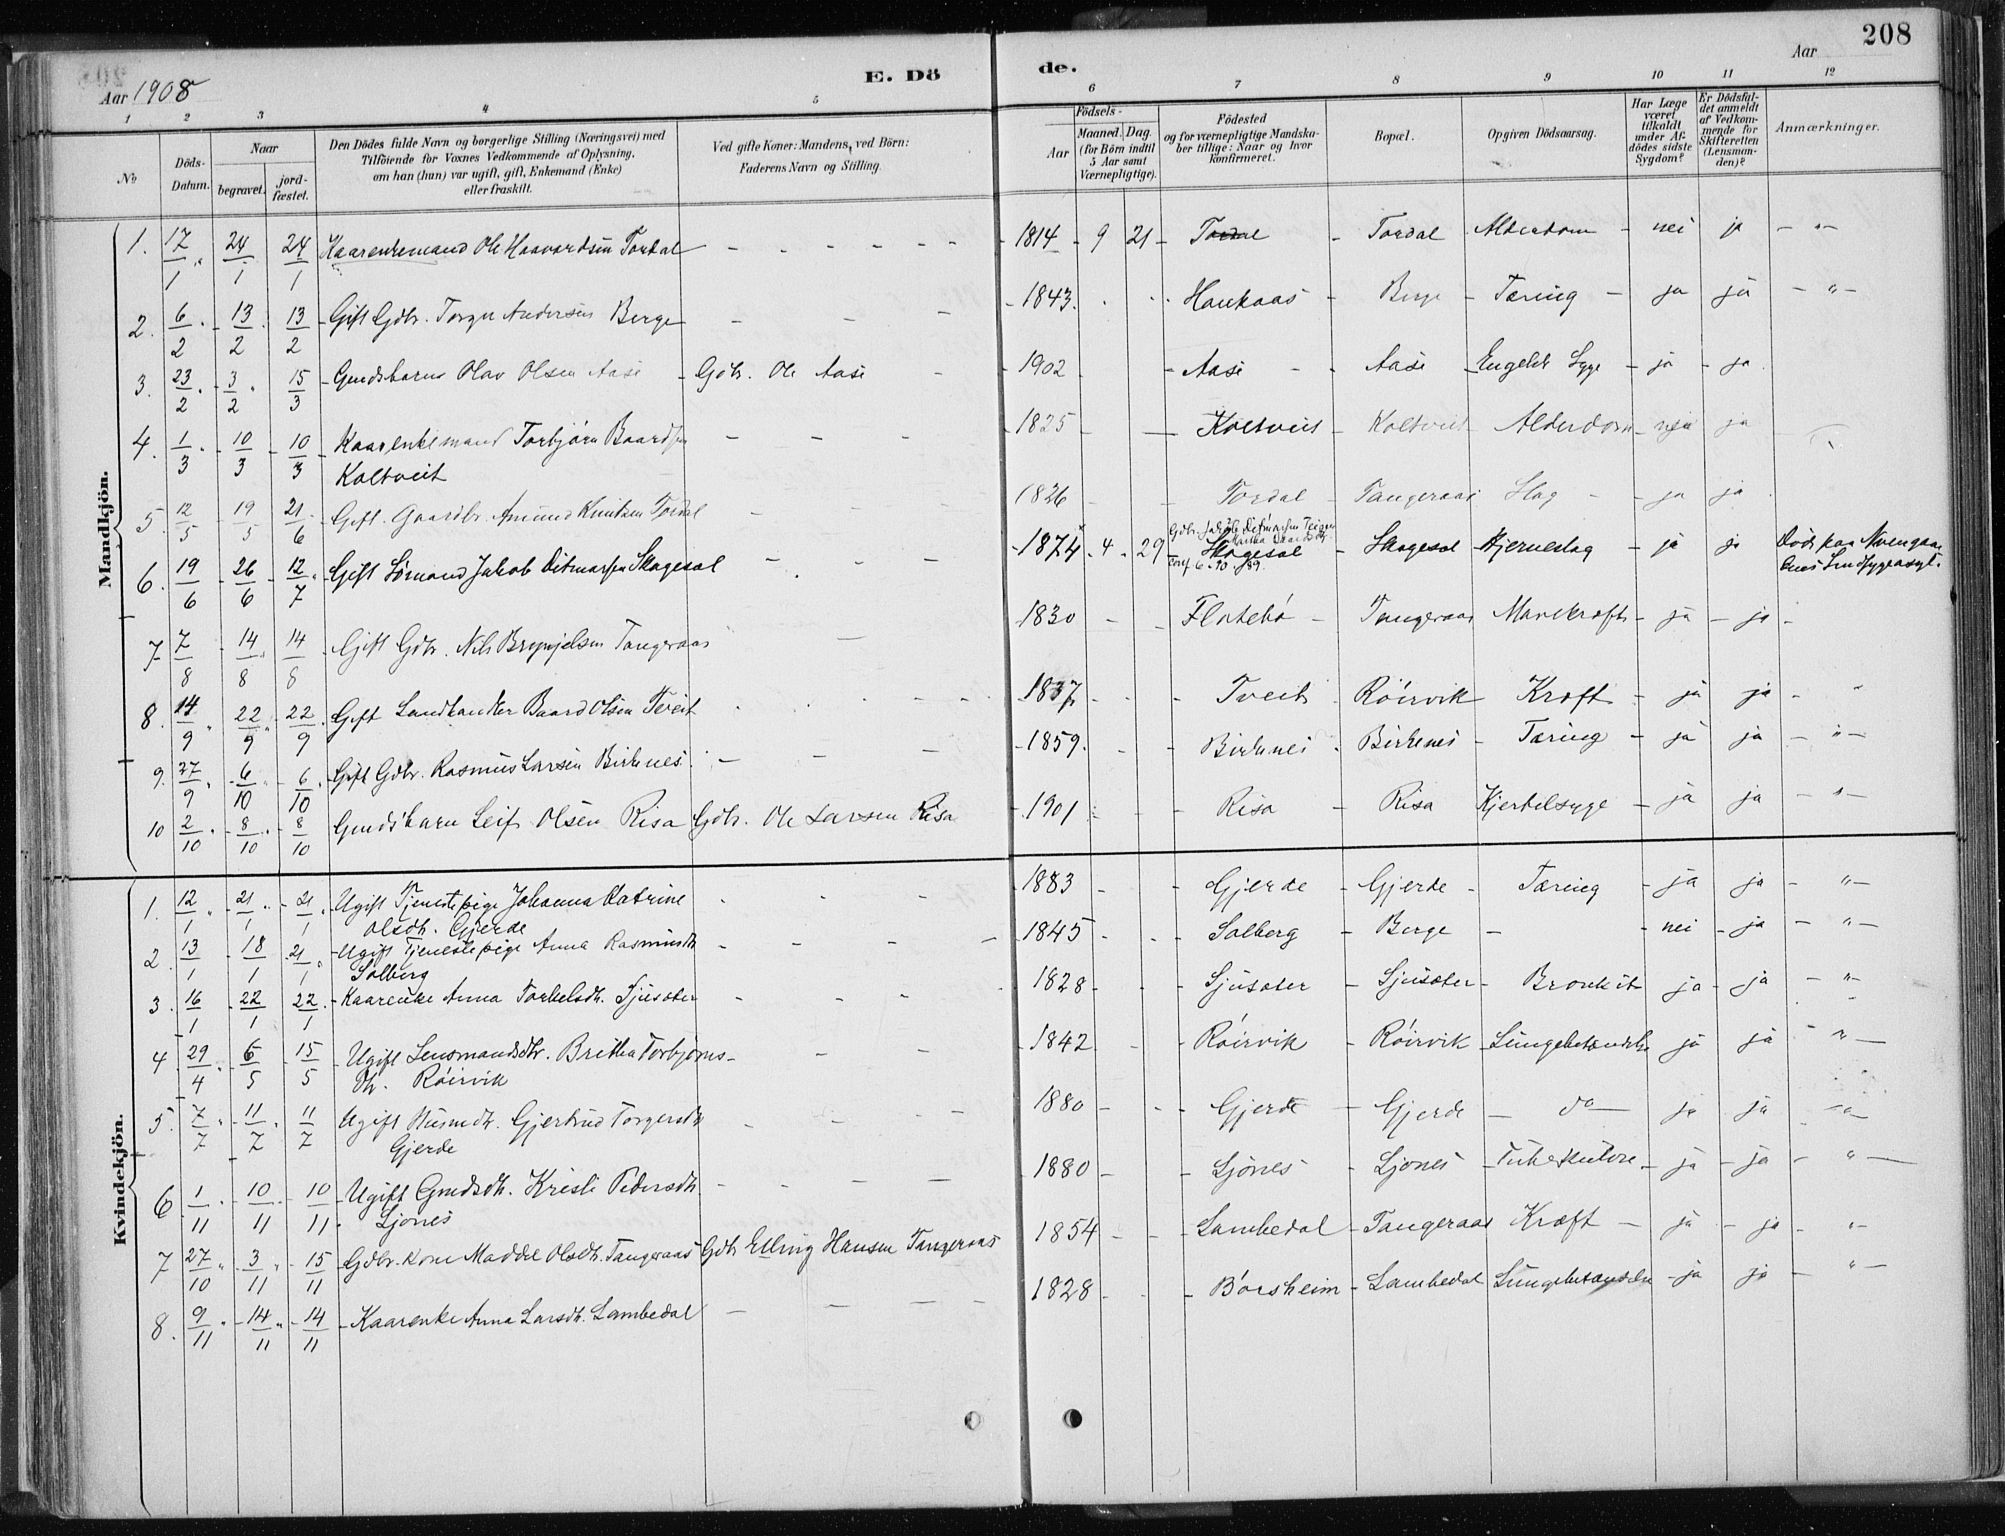 208
Aar 1908
E. Dö
de.
Aar
1 2 3 4 5 6 7 8 9 10 11 12
No
Döds-Datum.
Naar
begravet.
jord-fæstet.
Den Dödes fulde Navn og borgerlige Stilling (Næringsvei) med
Tilföiende for Voxnes Vedkommende af Oplysning,
om han (hun) var ugift, gift, Enkemand (Enke)
eller fraskilt.
Ved gifte Koner: Mandens, ved Börn:
Faderens Navn og Stilling.
Födsels-
Aar
Maaned. Dag.
(for Börn indtil
5 Aar samt
Værnepligtige).
Födested
og for værnepligtige Mandska-
ber tillige: Naar og hvor
konfirmeret.
Bopæl.
Opgiven Dödsaarsag.
Har Læge
været
tilkaldt
under Af-
dödes sidste
Sygdom?
Er Dödsfal-
det anmeldt
af Vedkom-
mende for
Skifteretten
(Lensman-
den)?
Anmærkninger.
Mandkjön.
1. 17/1 24/1 24/1 Kaarenkemand Ole Haavardsen Tordal - 1814 - 9 21 - Tordal - Tordal Alderdom - nei ja - " -
2. 6/2 13/2 13/2 Gift Gdbr. Torger Andersen Berge - 1843 Haukaas - Berge - Tæring - ja ja - " -
3. 23/2 3/2 15/3 Gmdsbarn Olav Olsen Aase - Gdbr. Ole Aase - 1902 - Aase - Aase - Engelsk Syge - ja - ja
4. 1/3 10/3 10/3 Kaarenkemand Torbjørn Baardsen
Koltveit - 1825 - Koltveit - Koltveit Alderdom - nei ja
5. 12/5 19/5 21/6 Gift. Gaardbr. Amund Knutsen Tordal - 1826 - Tordal - Tangeraas Slag - ja ja
6. 19/6 26/6 12/7 Gift Sömand Jakob Ditmarsen Skogesal - 1874 - 4 - 29 - Skogesal
conf 6.10.89 - Skogesal - Hjerneslag - ja ja Död paa
7 7/8 14/8 14/8 Gift Gdbr. Nils Brynjelsen Tangeraas - 1830 - Flatebö - Tangeraas Mavekræft - ja - ja -
8. 14/9 22/9 22/9 Gift Landhandler Baard Olsen Tveit - 1837 - Tveit Röirvik Kræft - ja ja - "
9. 27/9 6/10 6/10 Gift Gdbr. Rasmus Larsen Birkenes - 1859. - Birkenes - Birkenes - Tæring - ja ja - " -
10 2/10 8/10 8/10 Gmdsbarn Leif Olsen Risa Gdbr. Ole Larsen Risa - 1901 - Risa - Risa Kjertelsyge - ja ja - " -
Kvindekjön.
1. 12/1 21/1 21/1 Ugift Tjenestepige Johanna Katrine
Olsdtr. Gjerde - 1883 - Gjerde - Gjerde - Tæring - ja ja - " -
2. 13/1 18/1 21/1 Ugift Tjenestepige Anna Rasmusdtr
Solberg - 1845 - Solberg - Berge - - nei - ja - " -
3. 16/1 22/1 22/1 Kaarenke Anna Torkelsdtr. Ljusæter - 1828 - Ljusæter - Ljusæter - Bronkit - ja - ja - " -
4 29/4 6/5 15/5 Ugift Lensmandsdtr. Britha Torbjörns-
dtr. Röirvik - 1842 - Röirvik - Röirvik - Lungebetændelse ja ja " -
5. 7/7 11/7 11/7 Ugift Husmdtr. Gjertrud Torgersdtr
Gjerde - 1880 - Gjerde - Gjerde - do - ja ja - " -
6 1/11 10/11 10/11 Ugift Gmdsdtr. Kristi Pedersdtr.
Ljones - 1880 - Ljönes - Ljones - Tuberkulose - ja - ja - " -
7 27/10 3/11 15/11 Gdbr. kone Maddel Olsdtr. Tangeraas Gdbr Elling Hansen Tangeraas 1854 - Lambedal - Tangeraas Kræft - ja - ja - " -
8. 9/11 14/11 14/11 Kaarenke Anna Larsdtr. Lambedal - 1828 - Börsheim - Lambedal Lungebetændelse - ja ja - " -